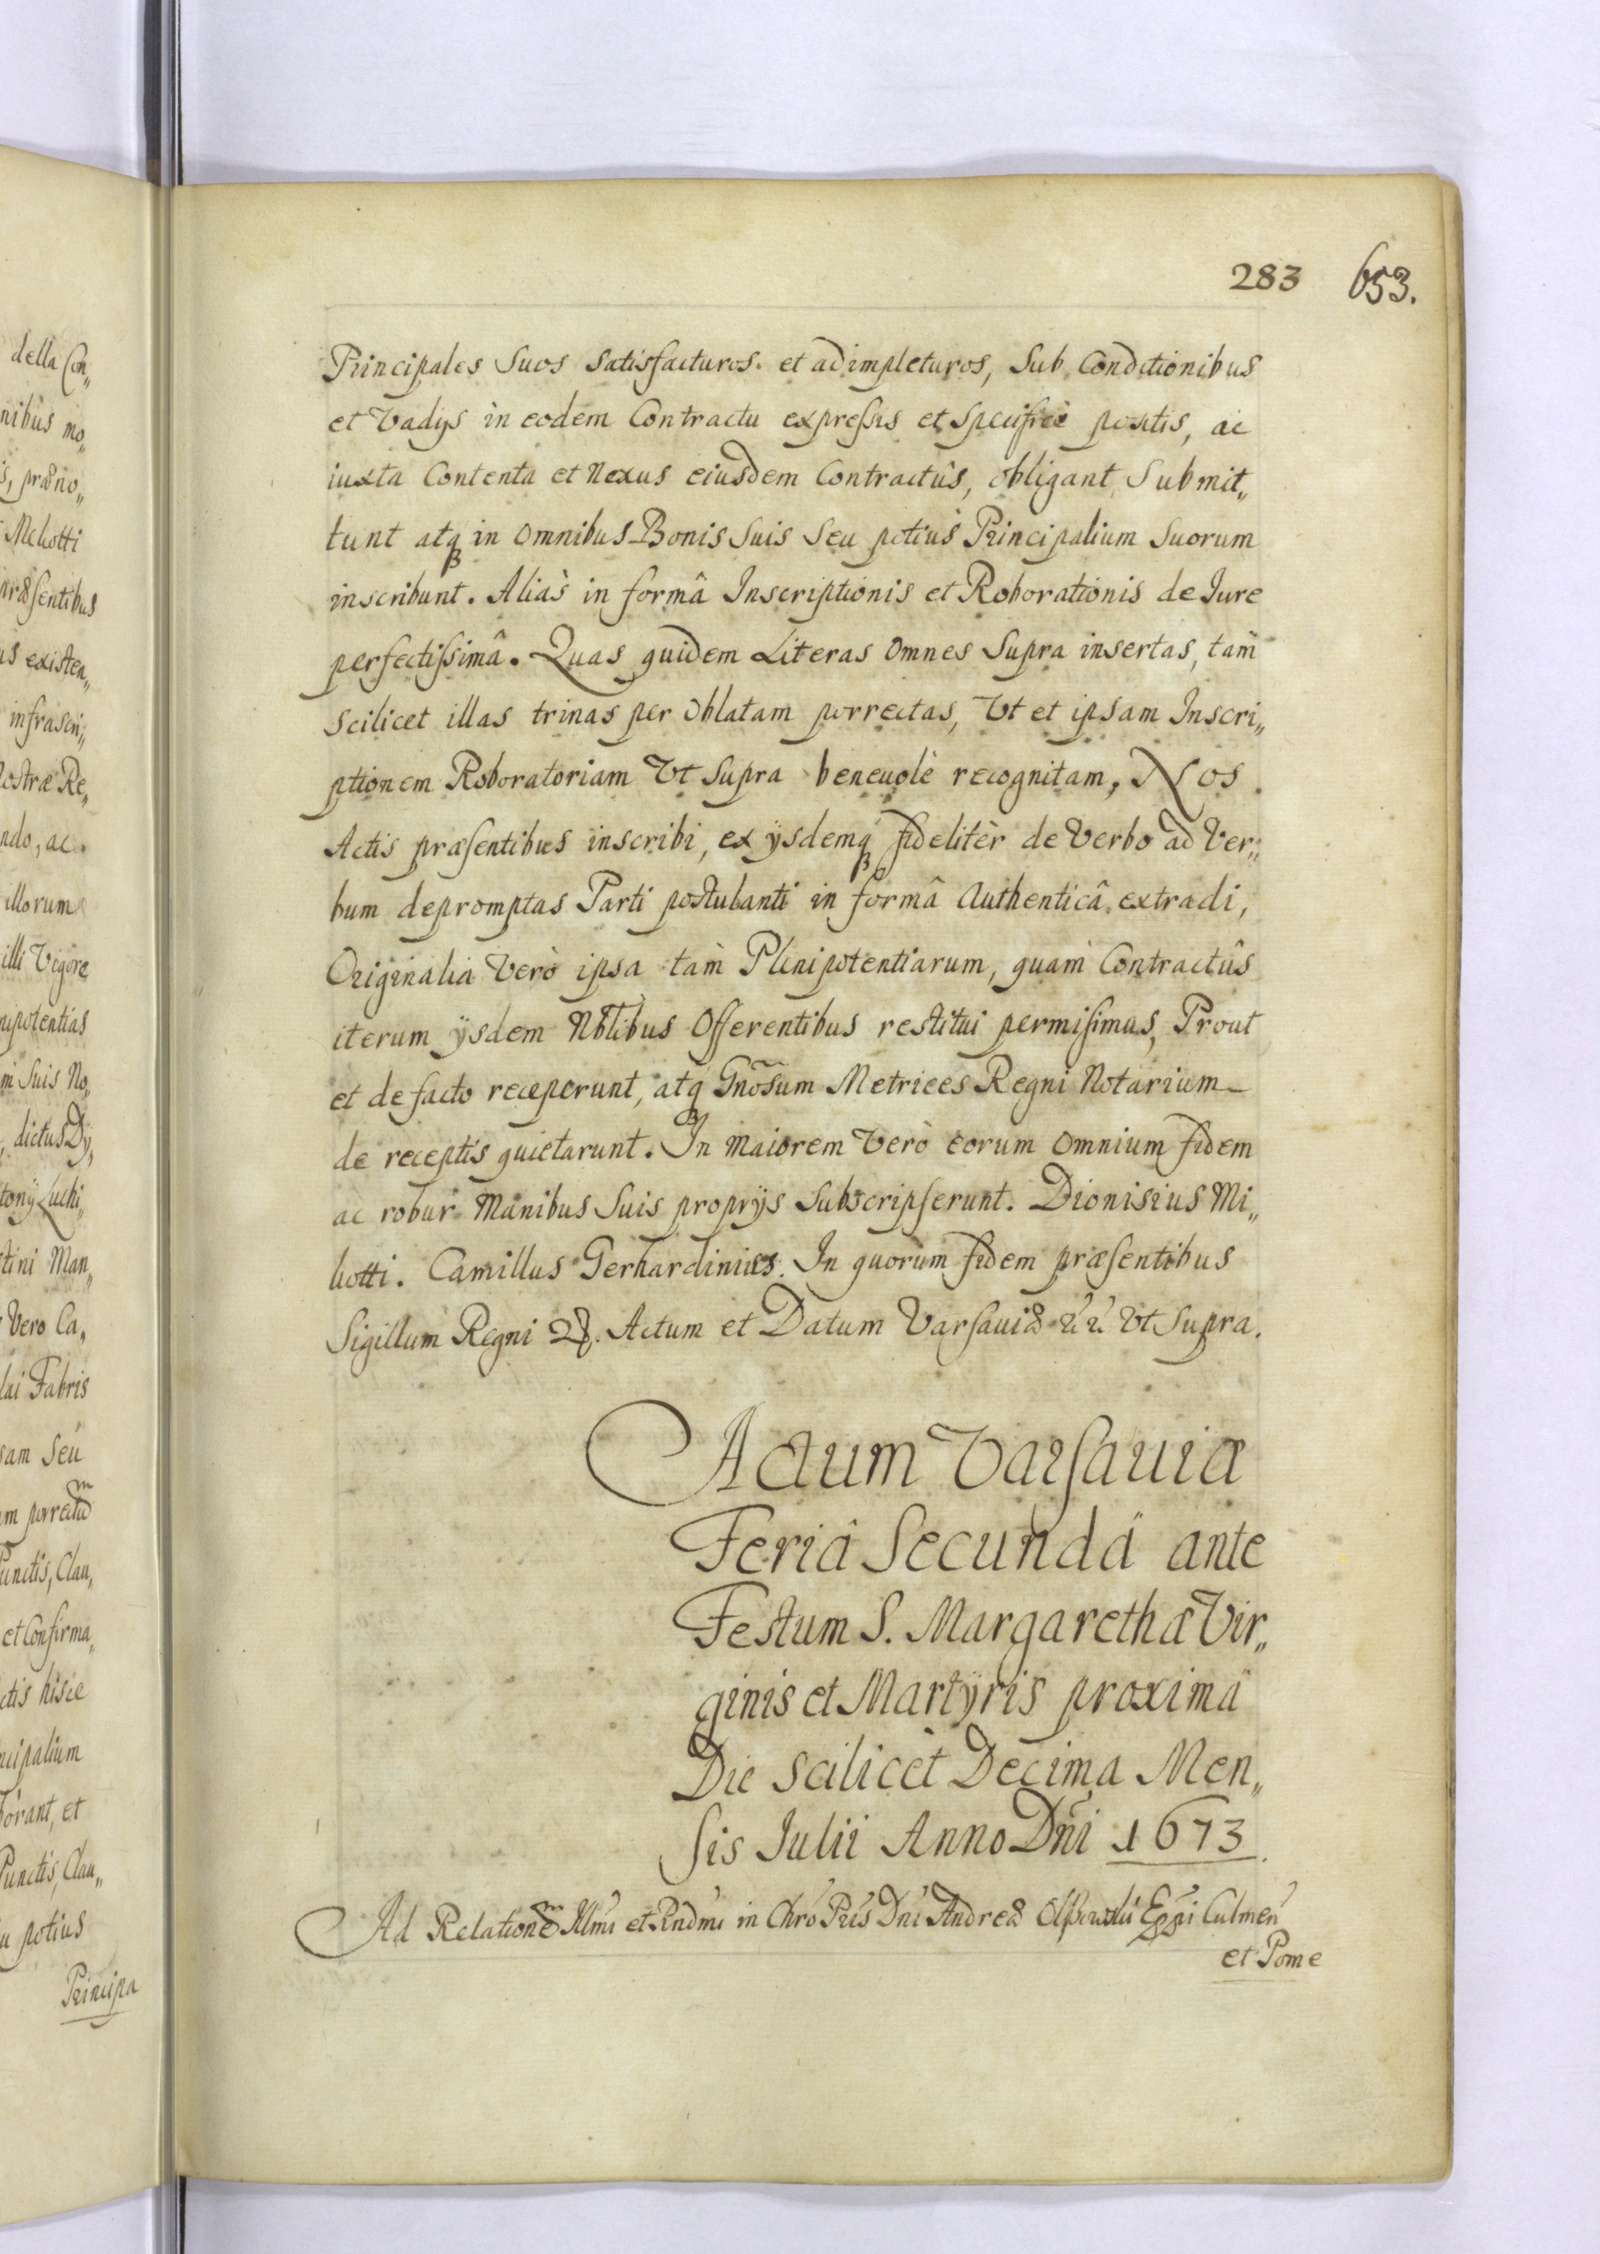 283 653.
Principales Suos satisfacturos. et adimpleturos, Sub Conditionibus
et Vadijs in eodem Contractu expressis et specificè positis, ac
iuxta Contenta et Nexus eiusdem Contractûs, obligant Submit„
tunt atq́ in omnibus Bonis Suis Seu potiùs Principalium Suorum
inscribunt. Aliàs in formâ Inscriptionis et Roborationis de Iure
perfectissimâ. Quas quidem Literas omnes Supra insertas, tam̀
scilicet illas trinas per Oblatam porrectas, Vt et ipsam Inscri„
ptionem Roboratoriam Vt Supra beneuolè recognitam, Nos
Actis præsentibus inscribi, ex ÿsdemq́ fidelitèr de Verbo ad Ver„
bum depromptas Parti postulanti in formâ Authenticâ extradi,
Originalia Verò ipsa tam̀ Plenipotentiarum, quam̀ Contractûs
iterum ÿsdem Nbtibus Offerentibus restitui permisimus, Prout
et de facto receperunt, atq́ Gnõsum Metrices Regni Notarium
de receptis quietarunt. In maiorem Verò eorum omnium fidem
ac robur Manibus Suis proprÿs Subscripserunt. Dionisius Mi„
liotti. Camillus Gerhardinius. In quorum fidem præsentibus
Sigillum Regni Actum et Datum Varsauiæ Vt Supra.
Actum Varsauiæ
Feriâ Secundâ ante
Festum S. Margarethæ Vir„
ginis et Martÿris proximâ
Die scilicet Decima Men„
sis Iulii Anno Dñi 1673.
Ad Relationem Illmi et Rndmi in Chro Pris Dni Andreæ Olszouskii Eppi Culmen
et Pome
della Con„
nibus mo„
s, præno„
Meliotti
præsentibus
us existen„
infrascri„
Nostræ Re„
ndo, ac
illorum
illi Vigore
nipotentias
m Suis No„
, dictus Dÿ„
tonÿ Luchi„
tini Man„
Vero Ca„
lai Fabris
sam Seu
m porrectam
Punctis, Clau„
et Confirma„
ctis hisce
ncipalium
borant, et
Punctis, Clau„
u potius
Principa